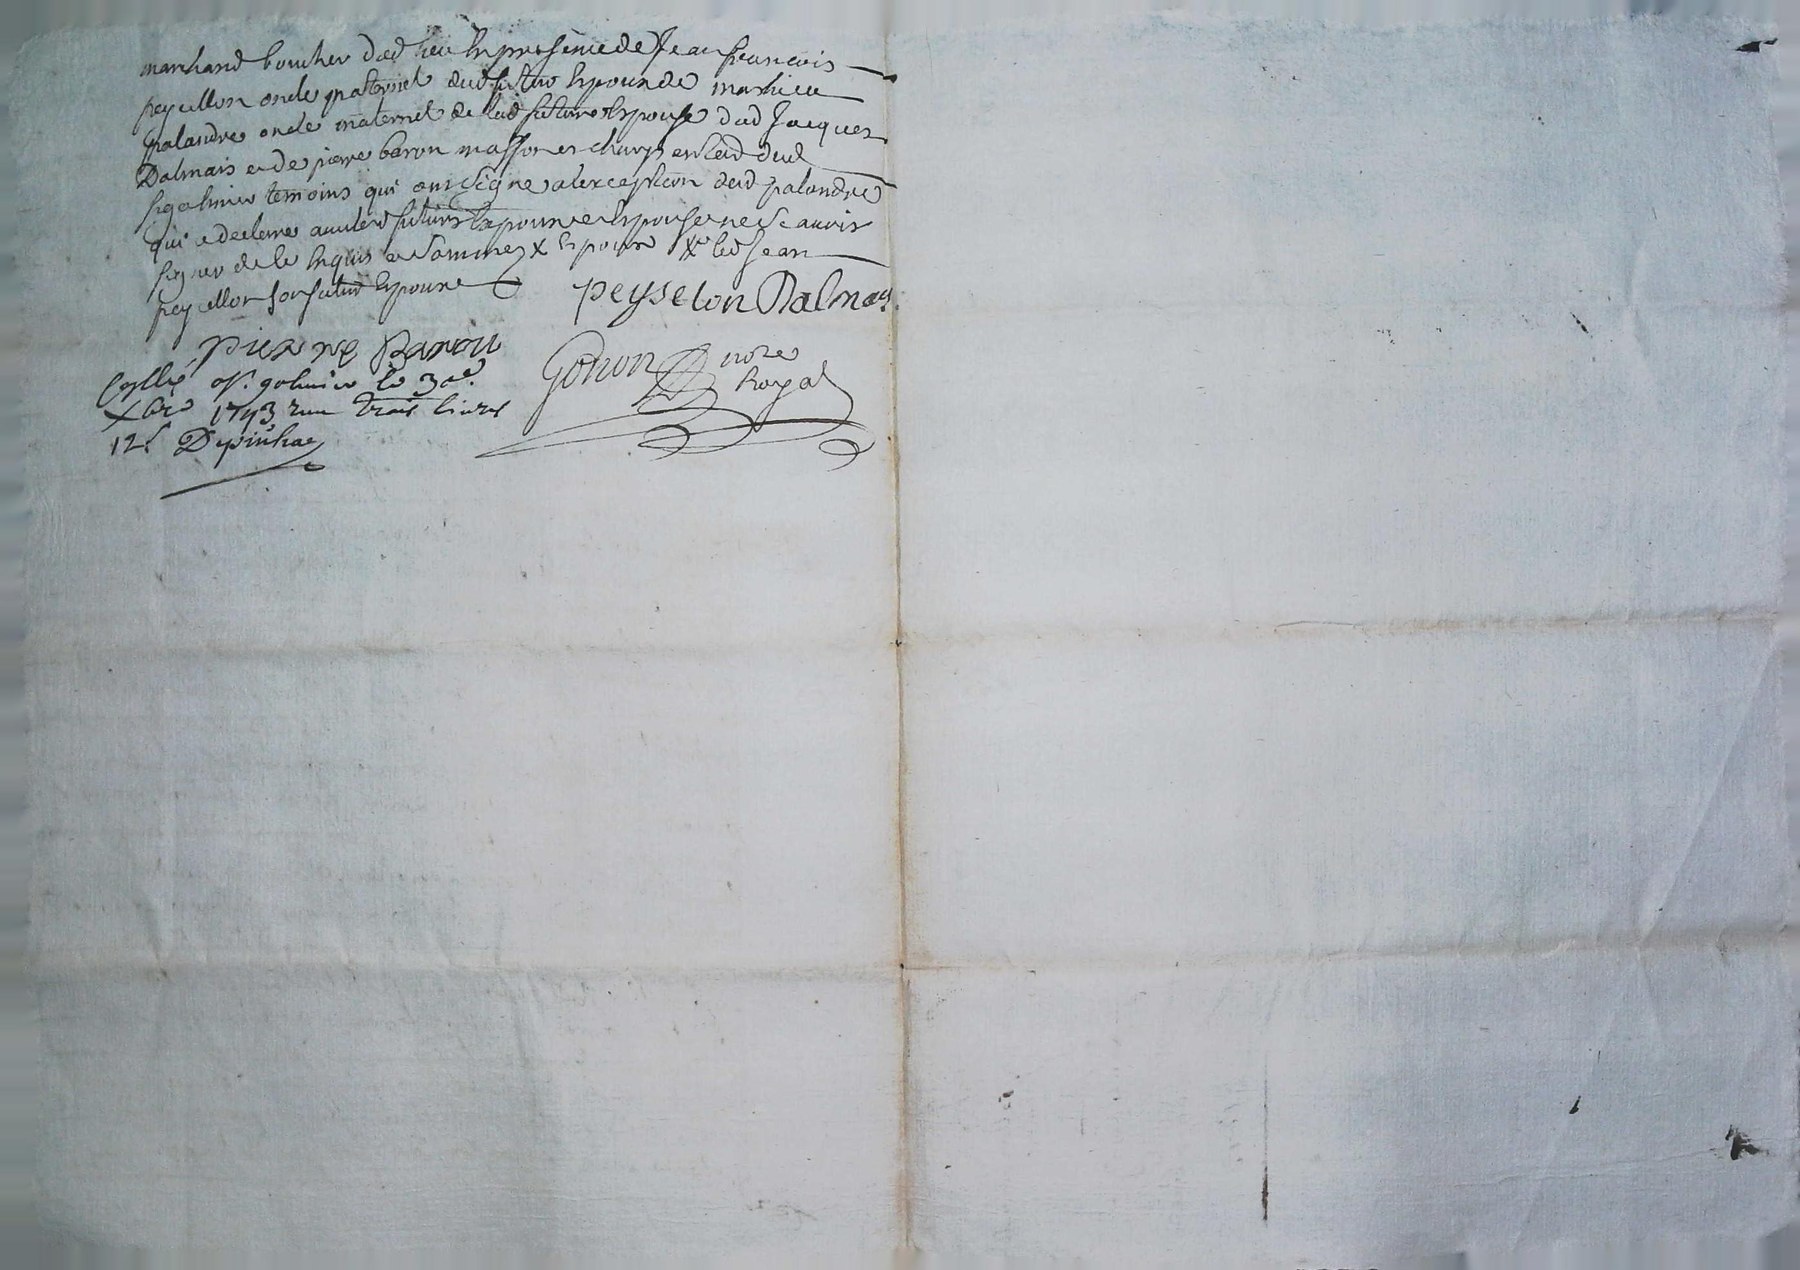 marchand boucher dud lieu en presence de Jean francois
peysellon oncle paternel dud futur Epoux de mathieu
palandre oncle maternel de lad future Epouse dud Jacques
Dalmais et de pierre baron masson et charp en lad dud
sgalmier temoins qui ont signe alexception dud palandre
qui a declare avec led futurs Epoux et Epouse ne scavoir
signer de le Enquis et Sommez x Epoux x led Jean
peysellon son futur Epoux
peyselon Dalmay
pierre Baron
Gonon nore
Royal
St. galmier le 30e
Xbre 1743 reçu trois livres
12s Depinhac